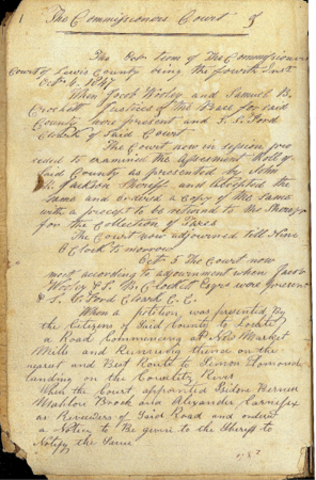 1 The Commissioners Court
The Oct Term of The Commissioners
Court of Lewis County being the fourth Inst
Oct 4. 1847
When Jacob Wooley and Samuel B.
Crockett Justices of the Peace for said
County were present and S. S. Ford
Clerk of Said Court
The Court now in session pro
ceeded to examined the Assessment Roll of
Said County as presented by John
R. Jackson Sheriff and accepted the
same and ordered a copy of the same
with a precept to be returnd to the Sheriff
for the Collection of Taxes
The Court now adjourned till Nine
O Clock to morrow
Oct 5 The Court now
meet according to adjournment when Jacob
Wooley & S. B. Crockett Esqrs were present
& S. S. Ford Clerk C. C.
When a petition was presented By
the Citizens of Said County to Locate
a Road Commencing at New Market
Mills and Running thence on the
nearest and Best Route to Simon Plomondo
landing on the Cowlitz River
When the Court appointed Isidore Bernier
and Alexander
as Reviewers of Said Road and ordered
a Notice to Be given to the Sheriff to
Notify the Same